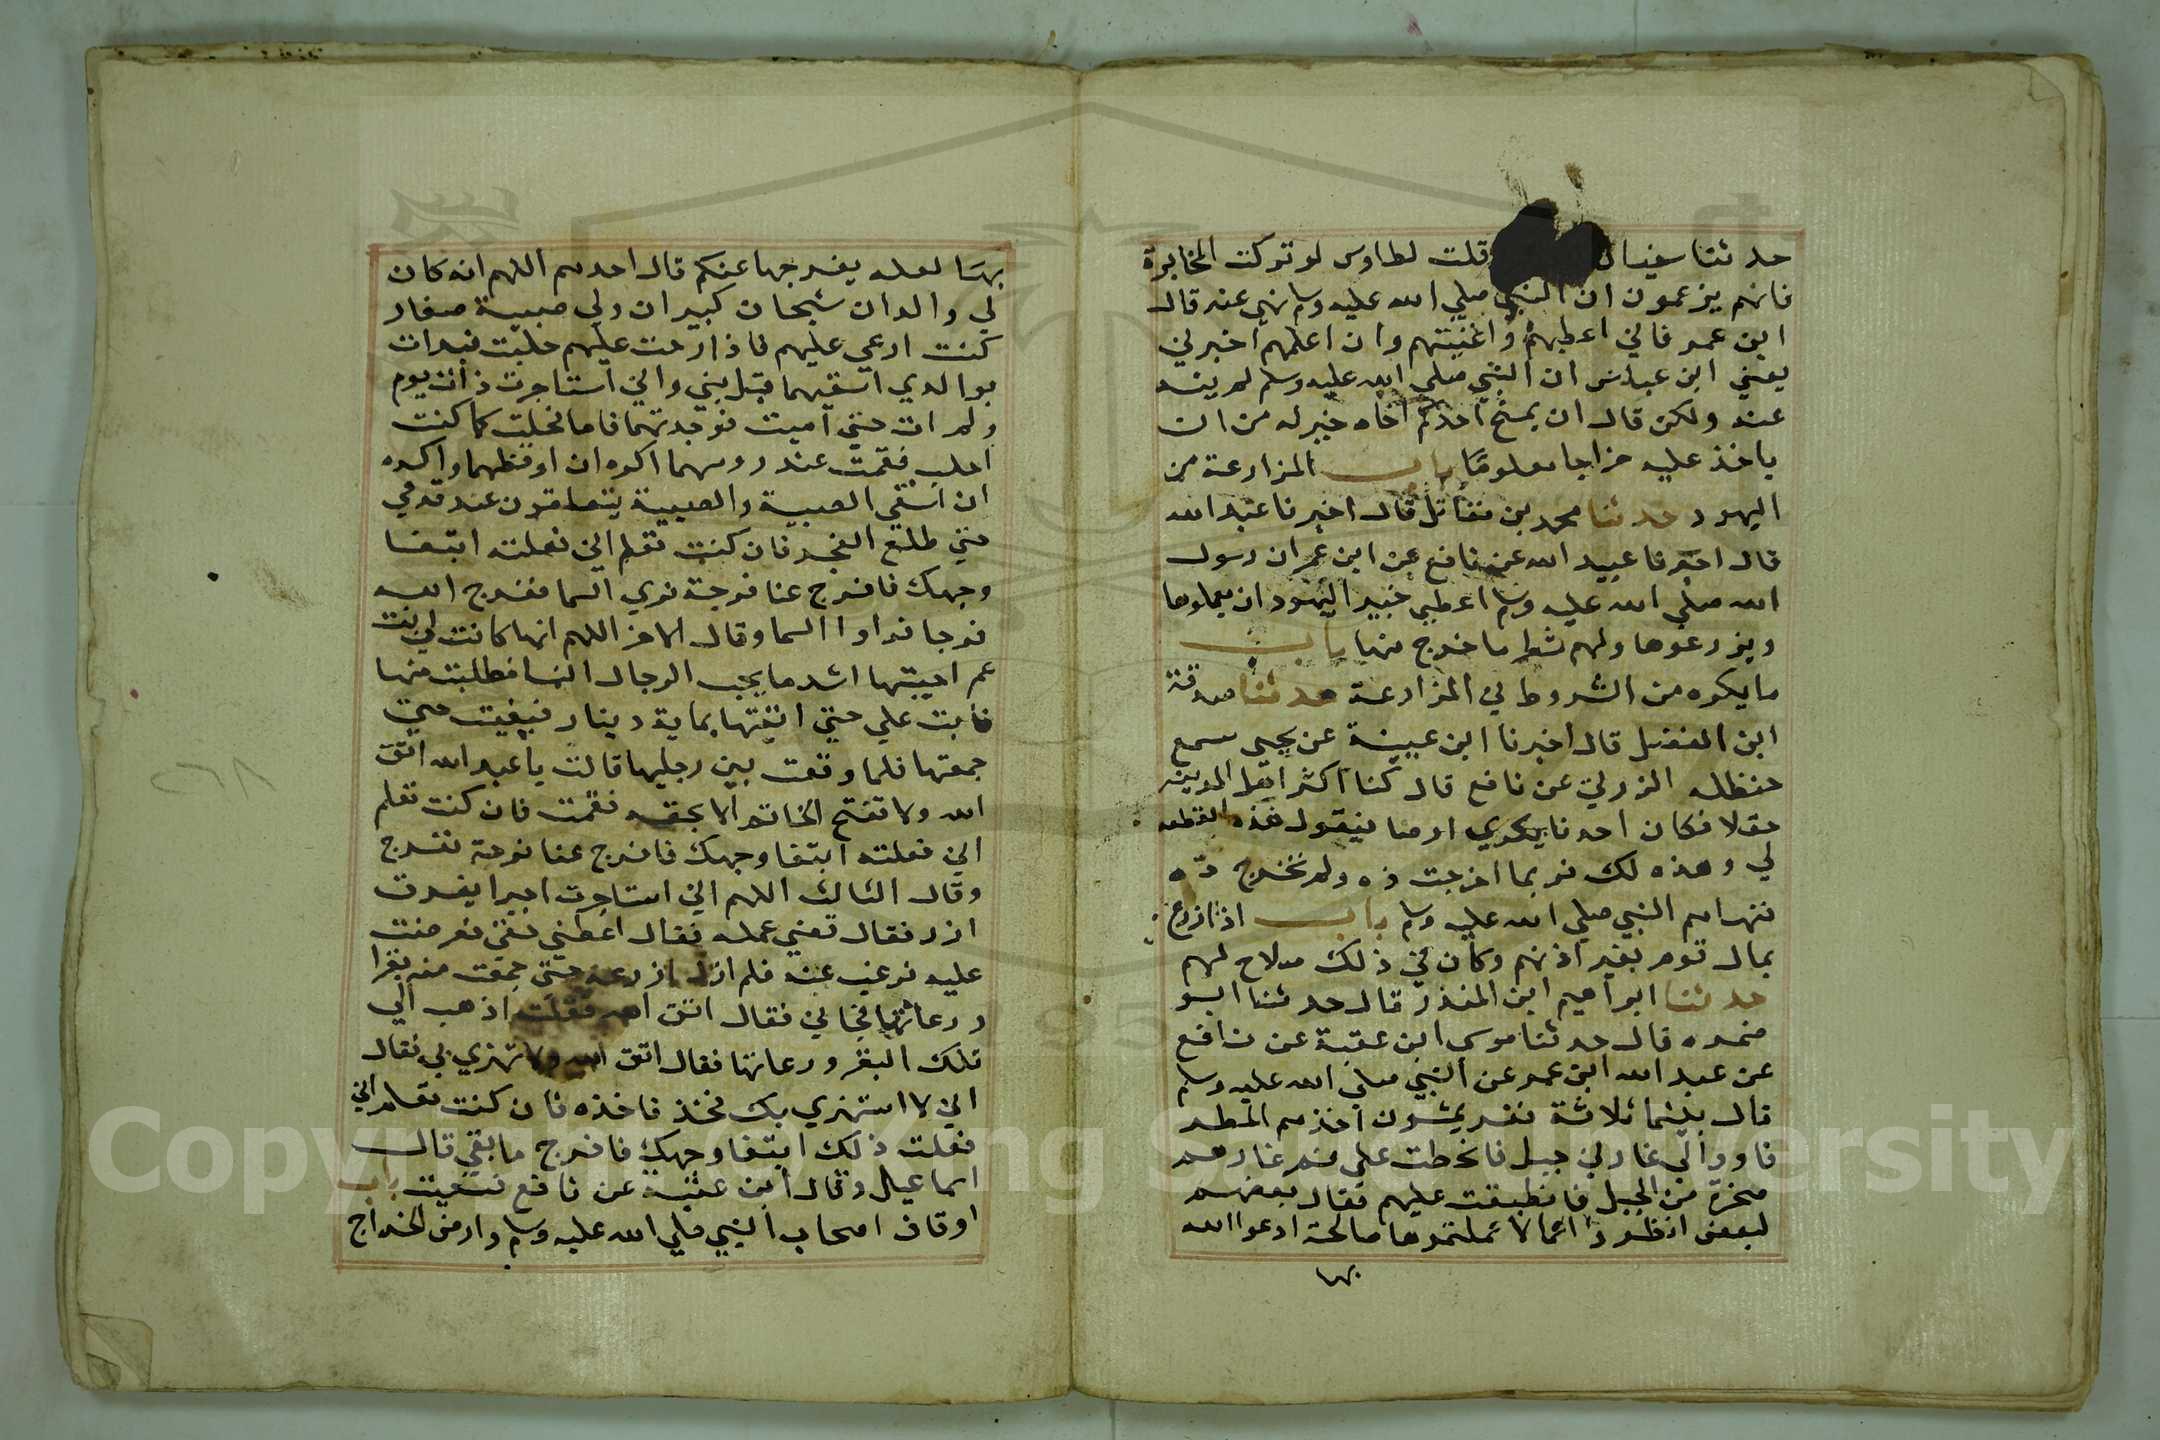 حدثنا سفيان قلت لطاوس لو تركت المخابرة
فانهم يزعمون ان النبي صلي الله عليه وسلم نهي عنه قال
ابن عمر فاني اعطيهم واغنيتهم وان اعلمهم اخبرني
يعني ابن عباس ان النبي صلي الله عليه وسلم لم ينه
عنه ولكن قال ان يمنح احدكم اخاه خير له من ان
ياخذ عليه خراجا معلوما باب المزارعة من
اليهود حدثنا محمد بن مقاتل قال اخبرنا عبد الله
قال اخبرنا عبيد الله عن نافع عن ابن عمر ان رسول
الله صلي الله عليه وسلم اعطي خيبر اليهود ان يعملوها
ويزرعوها ولهم شطر ما خرج منها باب
ما يكره من الشروط في المزارعة حدثنا صدقة
ابن الفضل قال اخبرنا ابن عيينة عن يحيى سمع
حنظله الزرقي عن نافع قال كنا اكثر اهل المدينه
حقلا فكان احدنا يكري ارضه فيقول هذه القطعه
لي وهذه لك فربما اخرجت ذه ولم تخرج ذه
فنهاهم النبي صلي الله عليه وسلم باب اذا زرع
بمال قوم بغير اذنهم وكان في ذلك صلاح لهم
حدثنا ابراهيم ابن المنذر قال حدثنا ابو
ضمره قال حدثنا موسى ابن عقبة عن نافع
عن عبد الله ابن عمر عن النبي صلي الله عليه وسلم
قال بينما ثلاثة نفر يمشون اخذهم المطر
فاووا الي غار في جبل فانحطت علي فم غارهم
صخرة من الجبل فانطبقت عليهم فقال بعضهم
لبعض انظروا اعمالا عملتموها صالحة ادعوا الله
بها
بها لعله يفرجها عنكم قال احدهم اللهم انه كان
لي والدان شيخان كبيران ولي صبية صغار
كنت ارعي عليهم فاذا رحت عليهم حلبت فبدات
بوالدي اسقيهما قبل بني واني استاجرت ذات يوم
ولم ات حتي امسيت فوجدتهما ناما فحلبت كما كنت
احلب فقمت عند روسهما اكره ان اوقظهما واكره
ان اسقي الصبية والصبية يتضاغون عند قدمي
حتي طلع الفجر فان كنت تعلم اني فعلته ابتغا
وجهك فافرج عنا فرجة نري السما ففرج الله
فرجا فراوا السما وقال الاخر اللهم انها كانت لي بنت
عم احببتها اشد ما يحب الرجال النسا فطلبت منها
فابت علي حتي اتيتها بماية دينار فبغيت حتي
جمعتها فلما وقعت بين رجليها قالت يا عبد الله اتق
الله ولا تفتح الخاتم الا بحقه فقمت فان كنت تعلم
اني فعلته ابتغا وجهك فافرج عنا فرجة ففرج
وقال الثالث اللهم اني استاجرت اجيرا بفرق
ارز فقال قضي عمله فقال اعطني حقي فعرضت
عليه فرغب عنه فلم ازل ازرعه حتى جمعت منه بقرا
ورعاتها فجاني فقال اتق الله فقلت اذهب الي
تلك البقر ورعاتها فقال اتق الله ولا تهزي بي فقال
اني لا استهزي بك فخذ فاخذه فان كنت تعلم اني
فعلت ذلك ابتغا وجهك فافرج ما بقي قال
اسماعيل وقال ابن عقبة عن نافع فسعيت باب
اوقاف اصحاب النبي صلي الله عليه وسلم وارض الخراج
Copyright © King Saud University